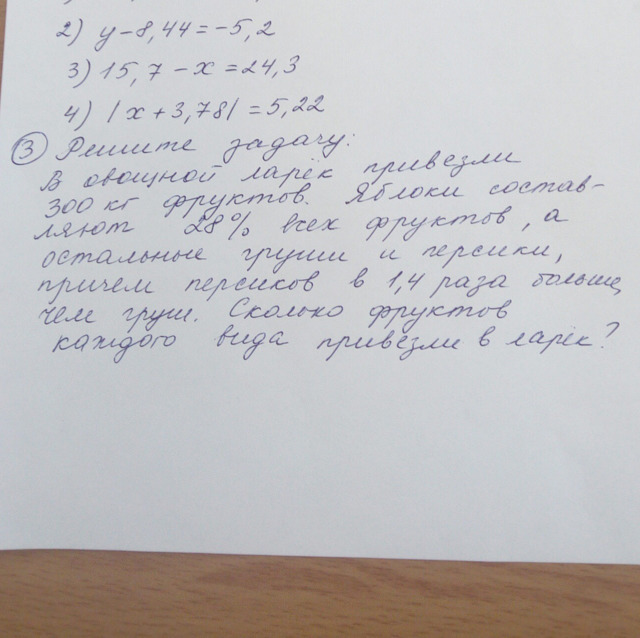 2) y-8,44=-5,2
3) 15,7-x=24,3
4) |x+3,78|=5,22
3 Решите задачу:
В овощной ларёк привезли
300 кг фруктов. Яблоки состав-
ляют 28% всех фруктов, а
остальные груши и персики,
причем персиков в 1,4 раза больше,
чем груш. Сколько фруктов
каждого вида привезли в ларёк?